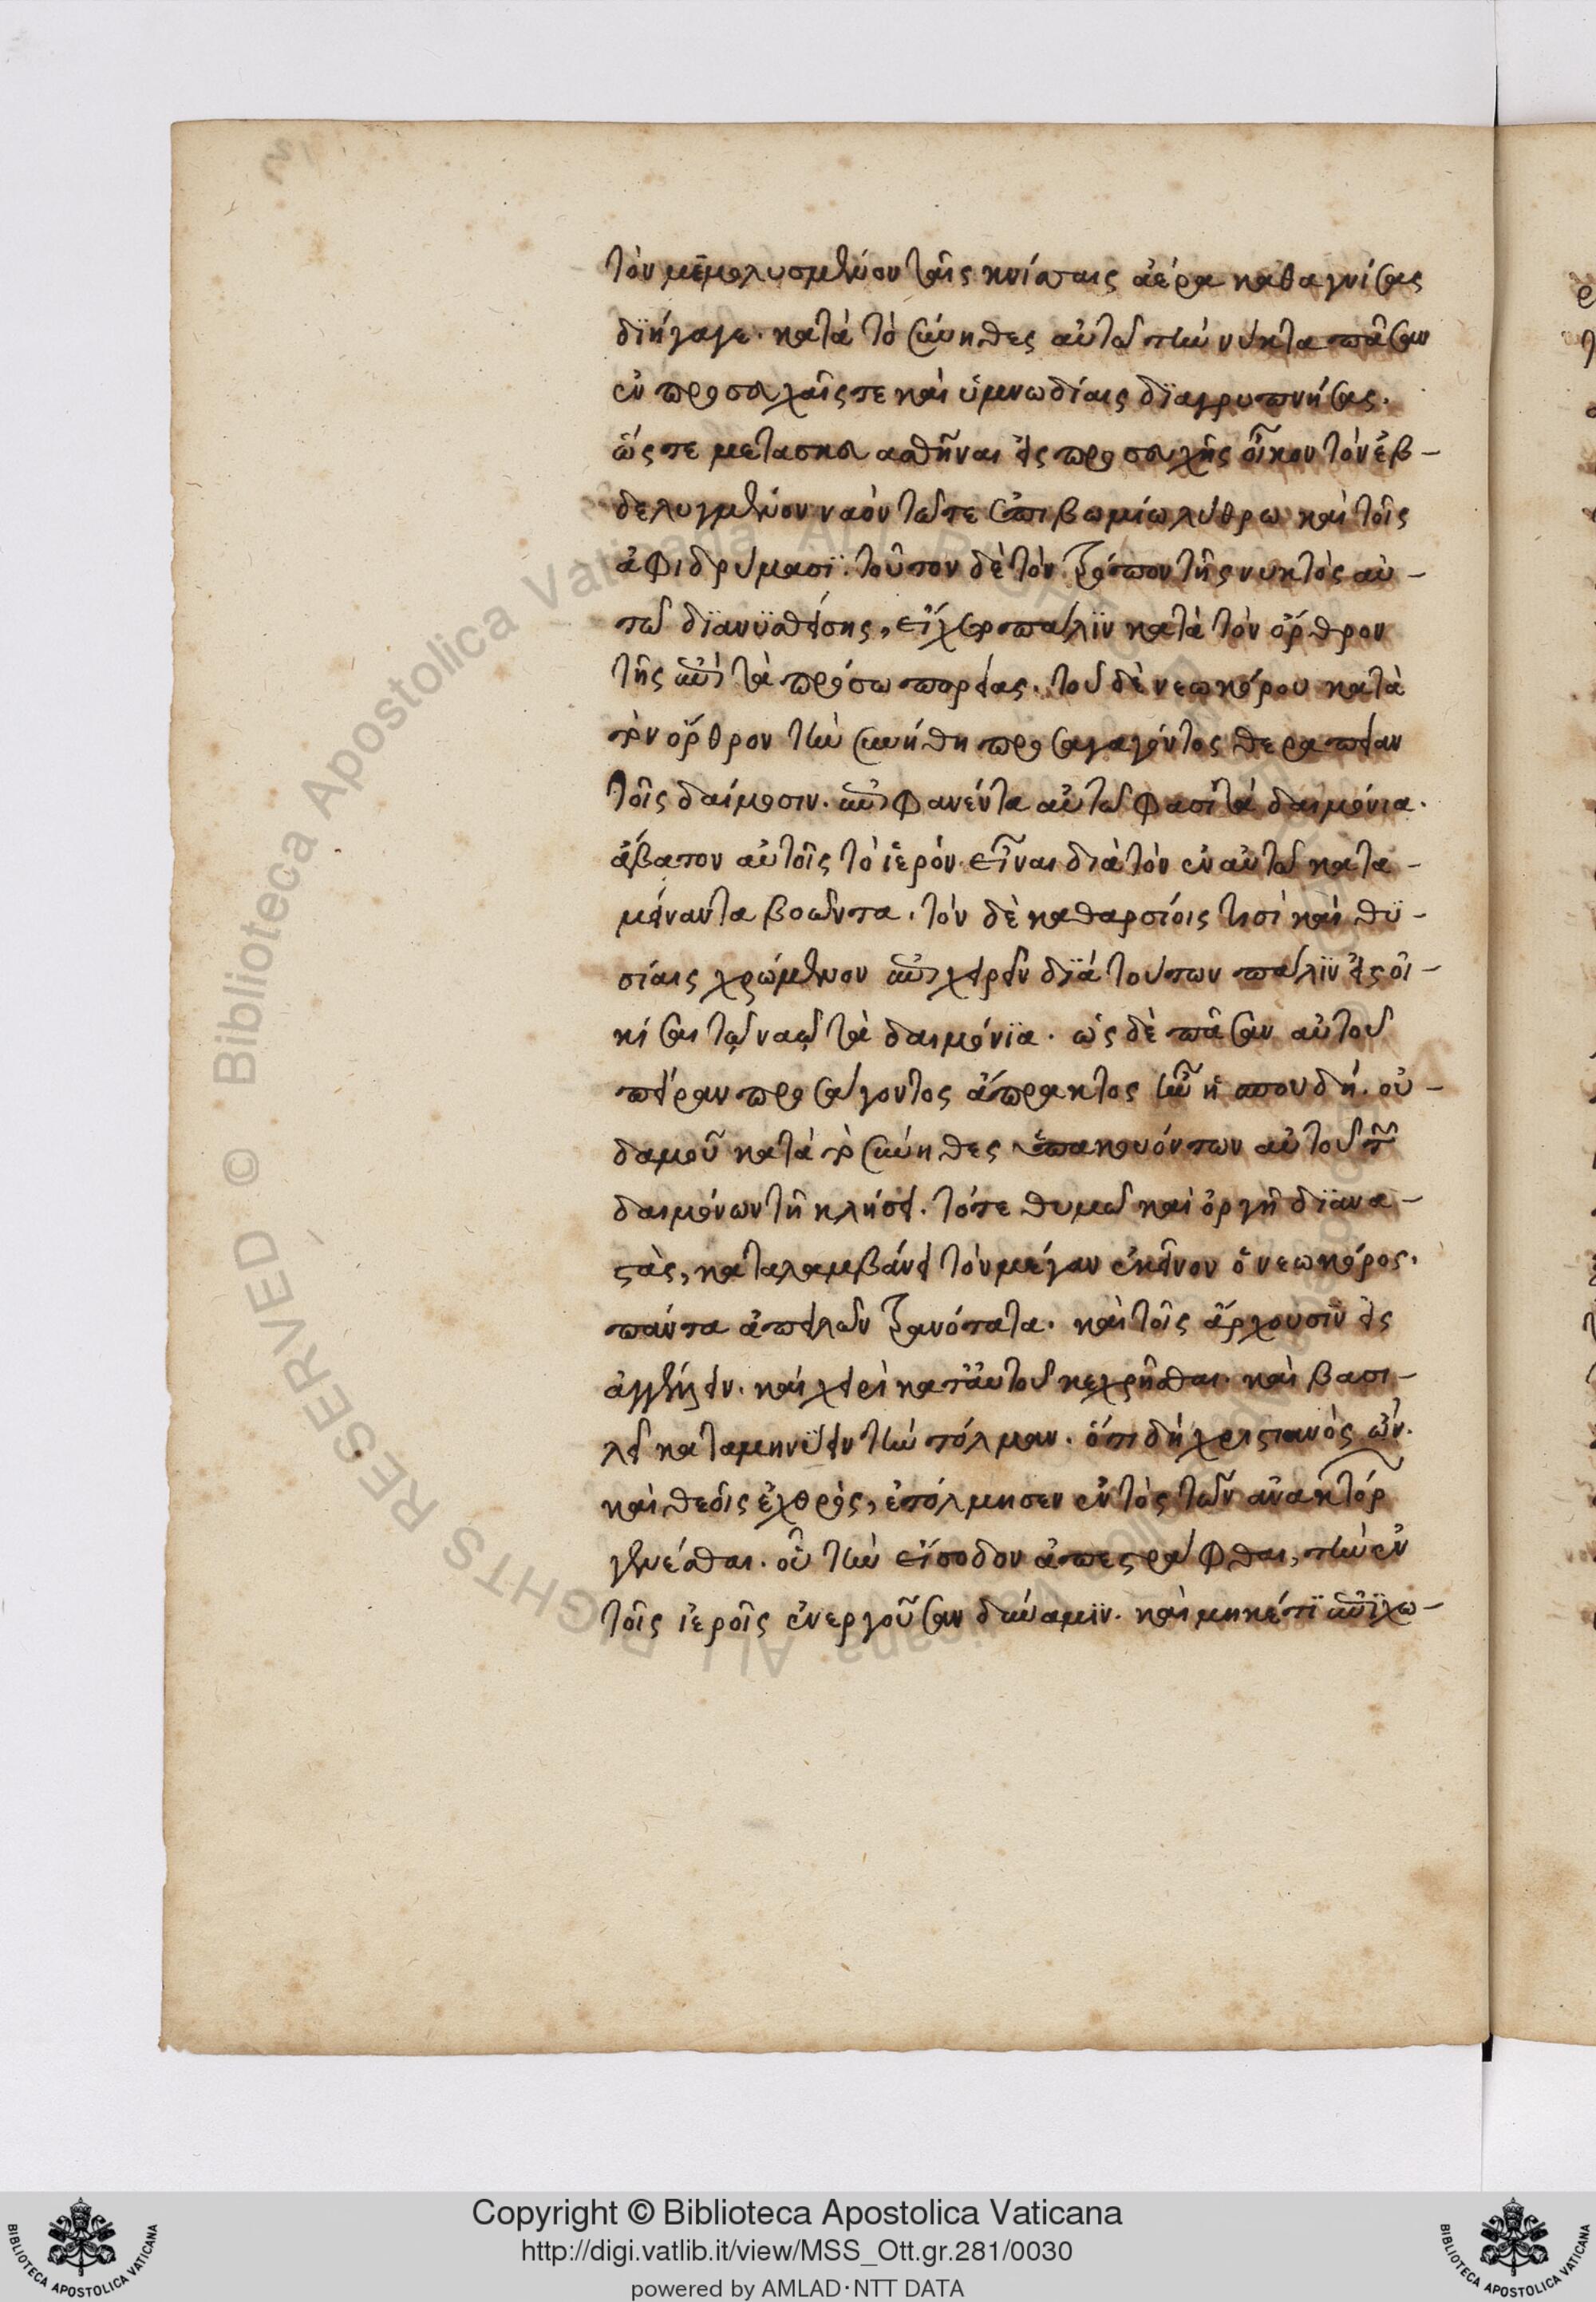 τὸν μεμολυσμένον ταῖς κνίσαις ἀέρα καθαγνίσας
διήγαγε. κατὰ τὸ σύνηθες αὐτῶ τὴν νύκτα πᾶσαν
ἐν προσευχαῖς τε καὶ ὑμνωδίαις διαγρυπνήσας.
ὥς τε μετασκευασθῆναι εἰς προσευχῆς οἶκον τὸν ἐβ-
δελυγμένον ναὸν τῶ τε ἐπιβωμίω λύθρω καὶ τοῖς
ἀφιδρύμασι. τοῦτον δὲ τὸν τρόπον τῆς νυκτὸς αὐ-
τῶ διανυσθείσης, εἴχετο πάλιν κατὰ τὸν ὄρθρον
τῆς ἐπὶ τὰ πρόσω πορείας. τοῦ δὲ νεωκόρου κατὰ
τὸν ὄρθρον τὴν συνήθη προσαγαγόντος θεραπείαν
τοῖς δαίμοσιν. ἐπιφανέντα αὐτῶ φασὶ τὰ δαιμόνια.
ἄβατον αὐτοῖς τὸ ἱερὸν εἶναι διὰ τὸν ἐν αὐτῶ κατα-
μείναντα βοῶντα. τὸν δὲ καθαρσίοις τισὶ καὶ θυ-
σίαις χρώμενον ἐπιχειρεῖν διὰ τούτων πάλιν εἰσοι-
κίσαι τῷ ναῷ τὰ δαιμόνια. ὡς δὲ πᾶσαν αὐτοῦ
πεῖραν προσάγοντος ἄπρακτος ἦν ἡ σπουδή. οὐ-
δαμοῦ κατὰ τὸ σύνηθες ὑπακουόντων αὐτοῦ τῶν
δαιμόνων τῆ κλήσει. τότε θυμῶ καὶ ὀργῆ διανα-
στὰς, καταλαμβάνει τὸν μέγαν ἐκεῖνον ὁ νεωκόρος.
πάντα ἀπειλῶν τρανότατα. καὶ τοῖς ἄρχουσιν εἰς
ἀγγέλειν. καὶ χειρὶ κατ' αὐτοῦ κεχρῆσθαι. καὶ βασι-
λεῖ καταμηνύειν τὴν τόλμαν. ὅτι δὴ χριστιανὸς ὢν.
καὶ θεοῖς ἐχθρὸς, ἐτόλμησεν ἐντὸς τῶν ἀνακτόρ
γενέσθαι. οὗ τὴν εἴσοδον ἀπεστράφθαι, τὴν ἐν
τοῖς ἱεροῖς ἐνεργοῦσαν δύναμιν. καὶ μηκέτι ἐπιχω-
Copyright © Biblioteca Apostolica Vaticana
http://digi.vatlib.it/view/MSS_Ott.gr.281/0030
powered by AMLAD·NTT DATA